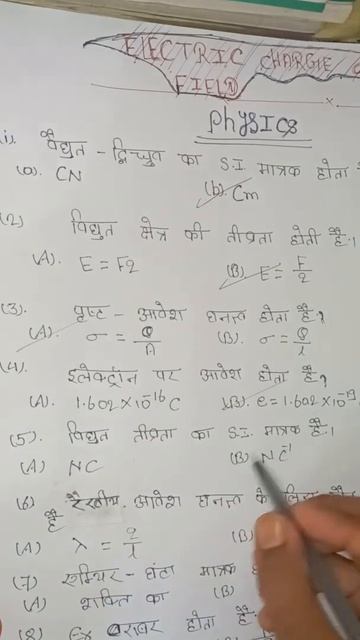 ELECTRIC CHARGE
FIELD
PhysICs
(i). वैद्युत - द्विध्रुव का S.I मात्रक होता है
(a). CN (b). Cm
(2) विद्युत क्षेत्र की तीव्रता होती है।
(A). E = F2 (B) E = F/2
(3). पृष्ट - आवेश घनत्व होता है?
(A). σ = Q/A (B). σ = Q/l
(4). इलेक्ट्रॉन पर आवेश होता है?
(A). 1.602 × 10⁻¹⁶ C (B). e = 1.602 × 10⁻¹⁹
(5). विद्युत तीव्रता का S.I. मात्रक है।
(A) NC (B) NC⁻¹
(6) रैखीय आवेश घनत्व के लिए
है
(A) λ = q/l (B)
(7) एम्पियर - घंटा मात्रक
(A) शक्ति का (B)
(8) बराबर होता है